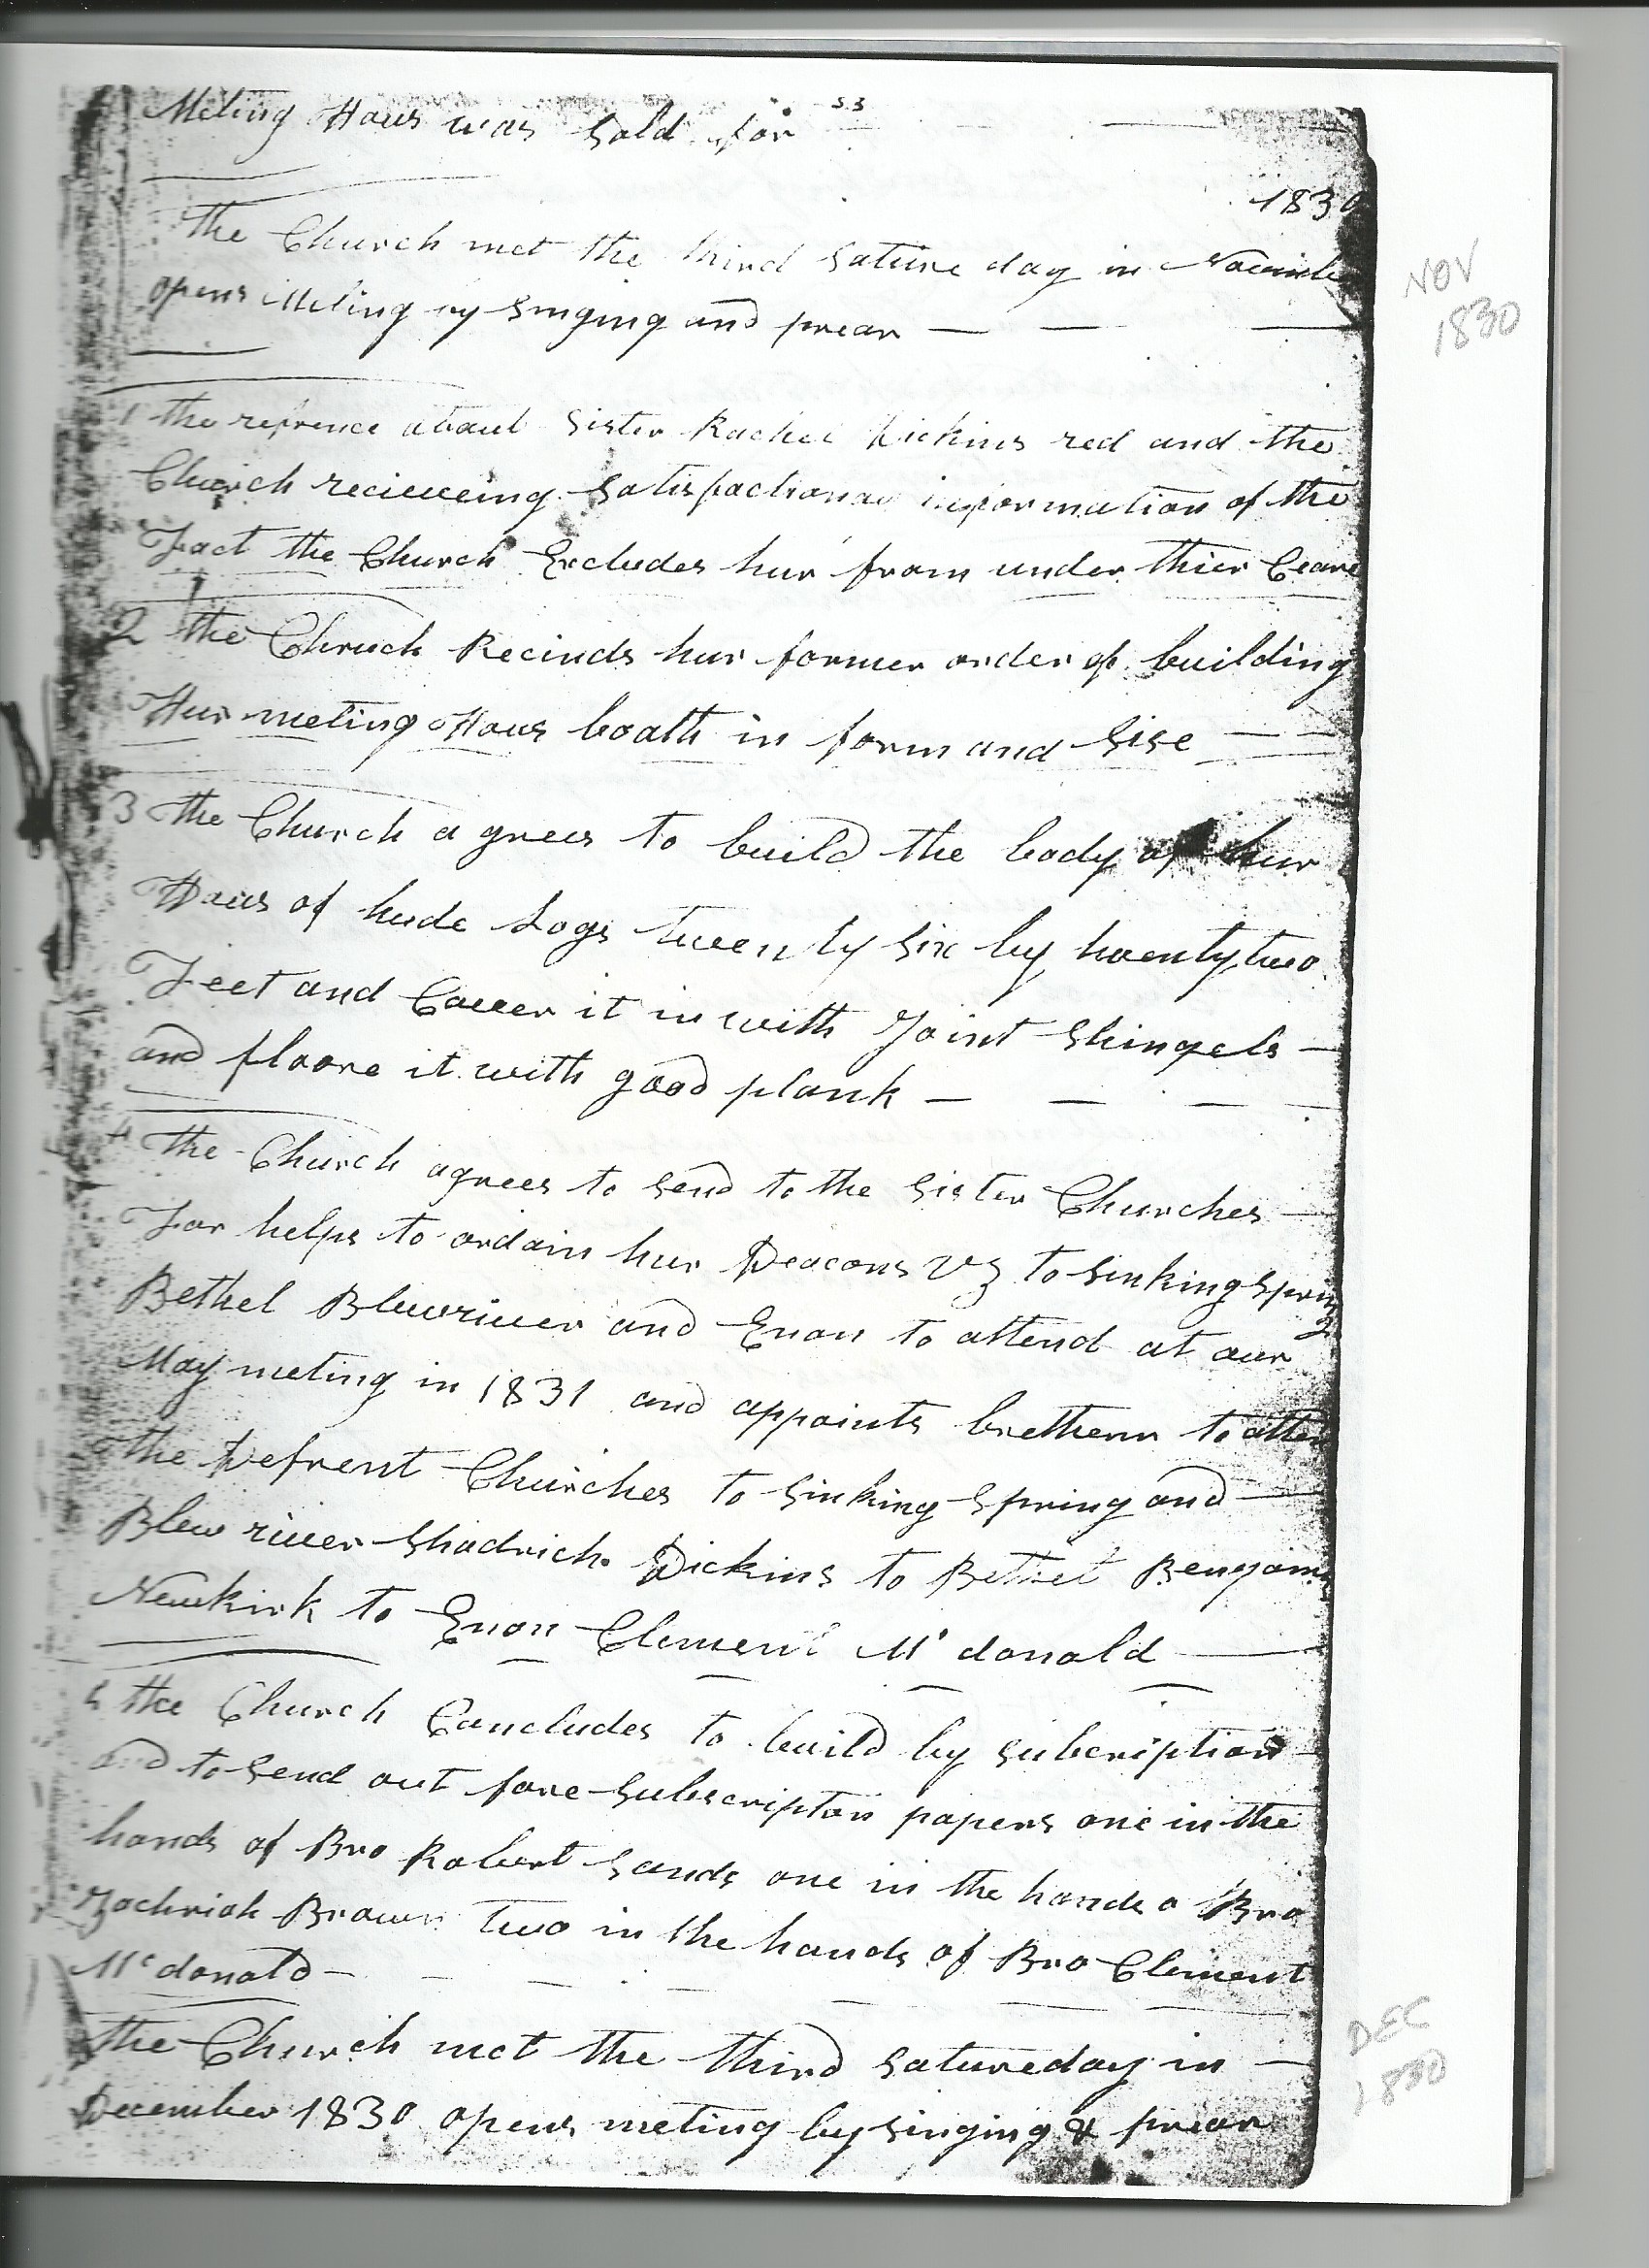 Meting Hous was sold for 53
1830
The Church met the third Sature day in Novembe
opens Meting by singing and prear
NOV
1830
1 the refrence about Sister Rachel Dickins red and the
Church recieveing Satisfactionary information of the
Fact the Church Excludes hur from under thier Ceare
2 the Chruch Recinds hur former order of building
Hur meting Hous boath in form and Sise
3 the Church a grees to build the body of hur
Hous of hude Logs twenty six by twenty two
Feet and Cover it in with Joint Shingels
and floore it with good plank
4 the Church agrees to send to the Sister Churches
For helps to ordain hur Deacons VZ to Sinking Spring
Bethel Blewriver and Enon to attend at our
May meting in 1831 and appoints brethern to atten
the Defrent Churches to Sinking Spring and
Blew river Shadrich Dickins to Bethel Benjamin
Newkirk to Enon Clement Mc donald
5 the Church Concludes to build by subcription
and to send out fore Subscripton papers one in the
hands of Bro Robert Sands one in the hands o Bro
Zachriah Brown two in the hands of Bro Clement
Mc donald
the Church met the third Satureday in
December 1830 opens meting by singing & prear
DEC
1830